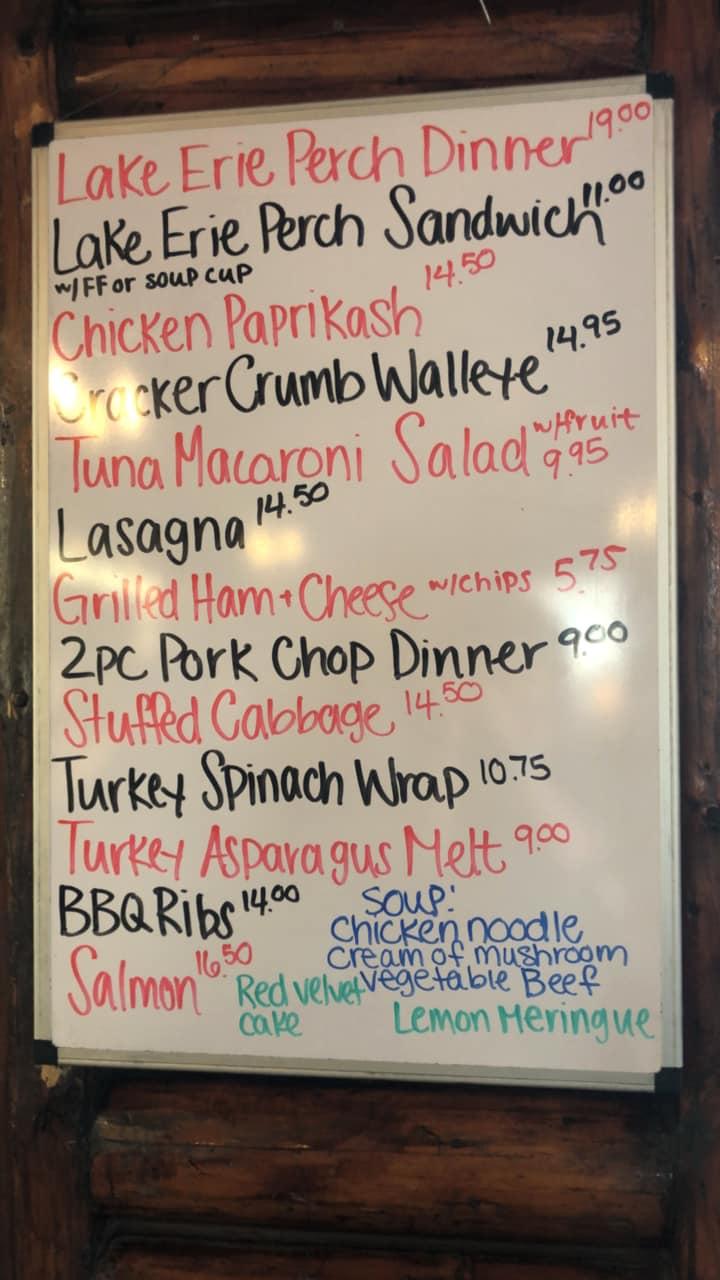 Lake Erie Perch Dinner 19.00
Lake Erie Perch Sandwich 11.00
w/FF or soup cup
Chicken Paprikash 14.50
Cracker Crumb Walleye 14.95
Tuna Macaroni Salad w/fruit 9.95
Lasagna 14.50
Grilled Ham + Cheese w/chips 5.75
2pc Pork Chop Dinner 9.00
Stuffed Cabbage 14.50
Turkey Spinach Wrap 10.75
Turkey Asparagus Melt 9.00
BBQ Ribs 14.00
Salmon 16.50
Soup:
chicken noodle
cream of mushroom
vegetable Beef
Red velvet
cake
Lemon Meringue